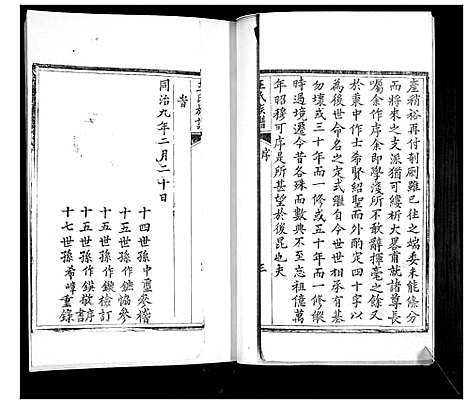 產稍裕再付剞劂雖已往之端委未能條分
而將來之支派猶可縷析大畧甫就諸尊長
囑余作序余即學淺所不敢辭揮毫之餘又
於裏中作士希賢紹聖而外酌定四十字以
為後世命名之定式繼自今世世相承有基
勿壞或三十年而一修或五十年而一修縱
時過境遷今昔各殊而數典不至忘祖億萬
年昭穆可序是所甚望於後昆也夫
王氏族譜
序
三
王氏族譜
旹
同治九年二月二十日
十四世孫中重參稽
十五世孫作鑣協參
十五世孫作鏇檢訂
十五世孫作鍈敬序
十七世孫希峰重錄